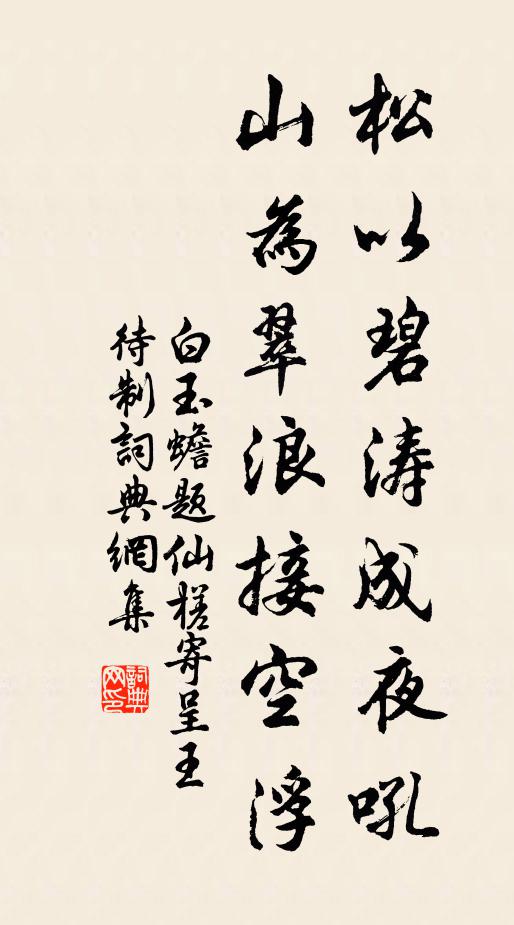 松以碧涛成夜吼
山為翠浪接空浮
白玉蟾题仙槎寄呈王
待制詞典網集
詞典
网印